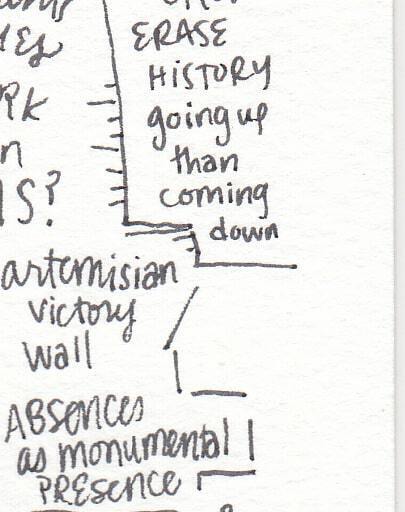 ERASE
HISTORY
going up
than
coming
down
RK
n
IS?
artemisian
victory
wall
ABSENCES
as monumental
PRESENCE